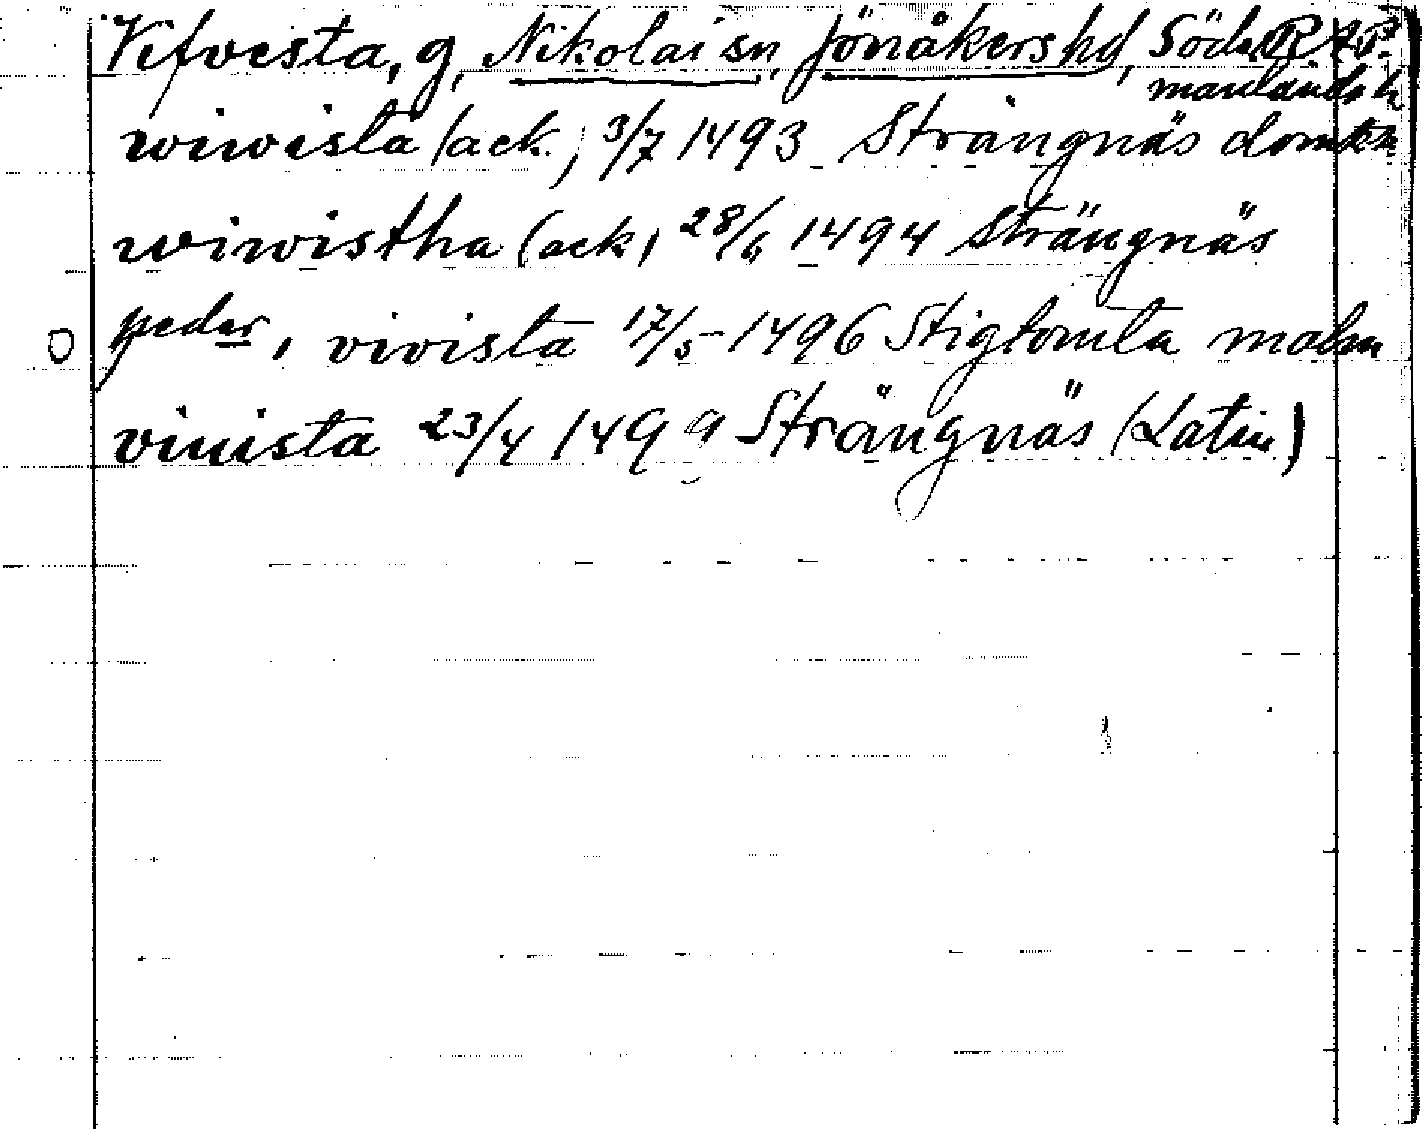 Vifvesta, g, Nikolai sn, Jönåkers hd, Söder RAP.
manlands l
wiwista (ack.) 3/7 1493 Strängnäs domk
wiwistha (ack) 28/6 1494 Strängnäs
peder, vivista 17/5 1496 Stigtomta malm
viuista 23/4 1499 Strängnäs (Latin)